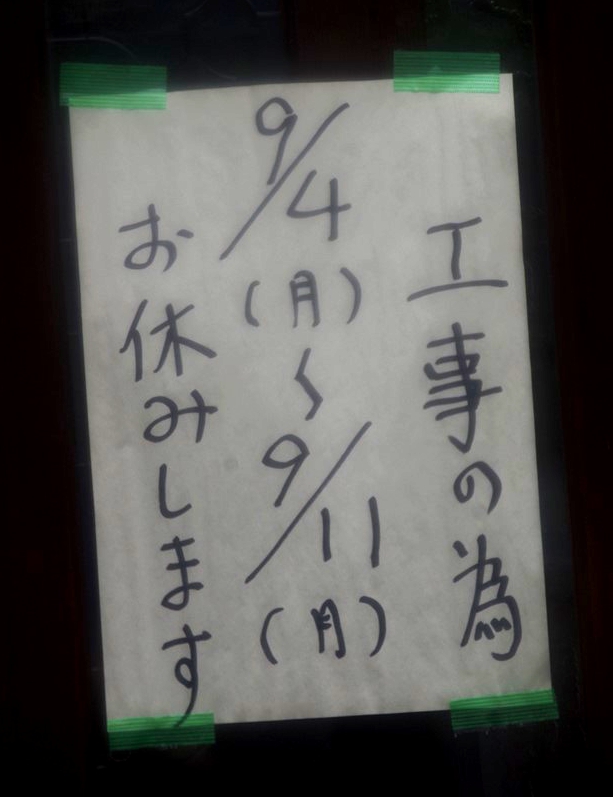 工事の為
9/4(月)〜9/11(月)
お休みします